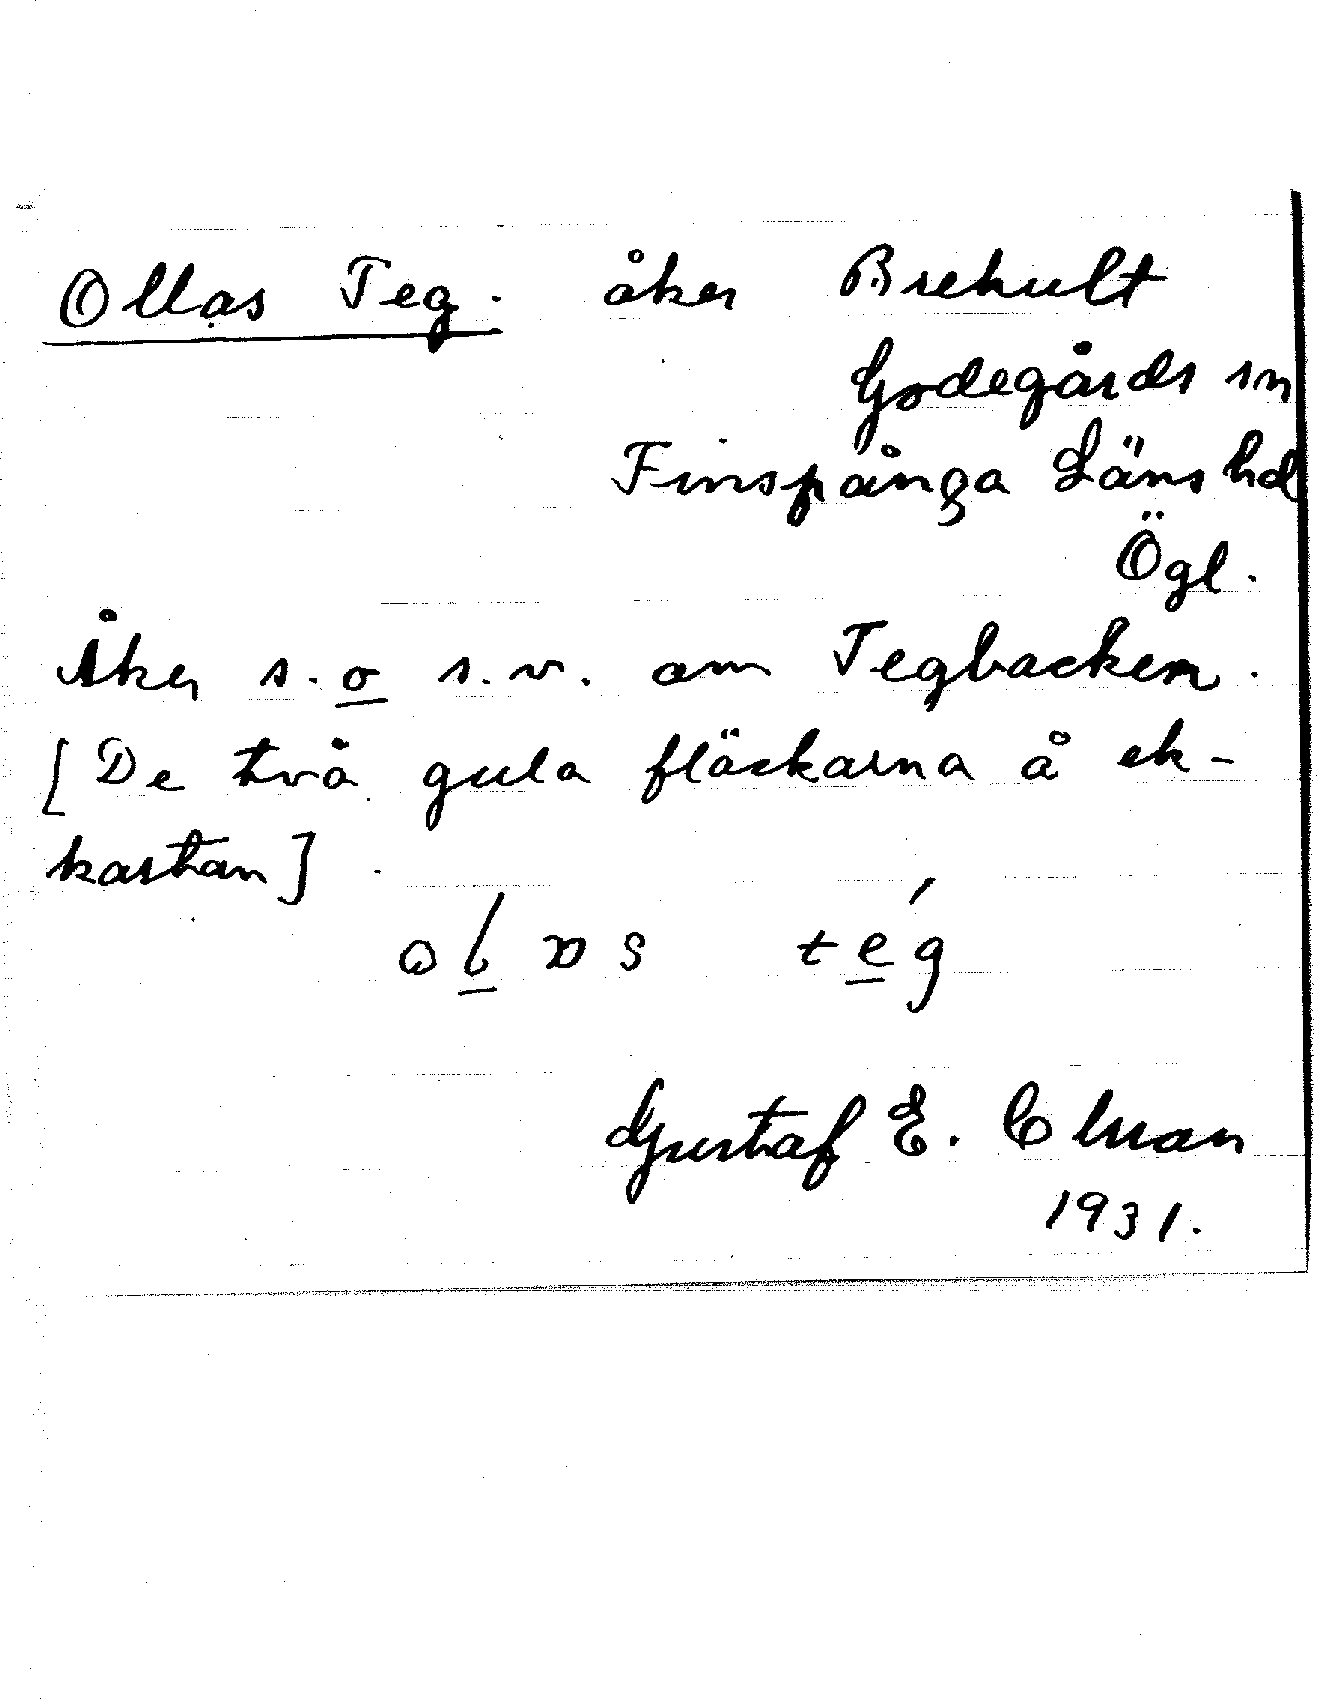 Ollas Teg. åker Brekult
Godegårds sn
Finspånga Läns hd
Ögl.
Åker s. o s.v. om Tegbacken.
[De två gula fläckarna å ek-
kartan]
Gustaf E.
1931.